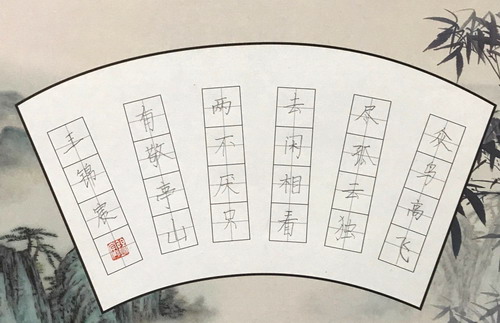 众鸟高飞
尽孤云独
去闲相看
两不厌只
有敬亭山
王锦